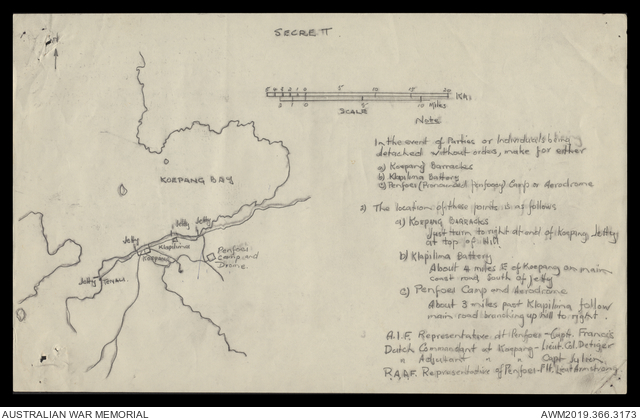 SECRET
N
5 4 3 2 1 0 5 10 15 20 KMs
2 1 0 5 10 Miles
SCALE
Note
In the event of Parties or Individuals being
detached without orders, make for either
a) Koepang Barracks
b) Klapilima Battery
c) Penfoei (Pronounced Penfooey) Camp or Aerodrome
2) The location of these points is as follows
a) KOEPANG BARRACKS
Just turn to right at end of Koepang Jetty
at top of hill
b) Klapilima Battery
About 4 miles E of Koepang on main
coast road South of Jetty
c) Penfoei Camp and Aerodrome
About 3 miles past Klapilima follow
main road branching up hill to right.
A.I.F. Representative at Penfoei - Capt. Francis
Dutch Commandant at Koepang - Lieut. Col. Detiger
" Adjutant " " Capt
R.A.A.F. Representative of Penfoei - Flt. Lieut Armstrong
KOEPANG BAY
Jetty
Jetty
Jetty
Klapilima
Koepang
Penfoei
Camp and
Drome.
Jetty TENAU.
AUSTRALIAN WAR MEMORIAL
AWM2019.366.3173